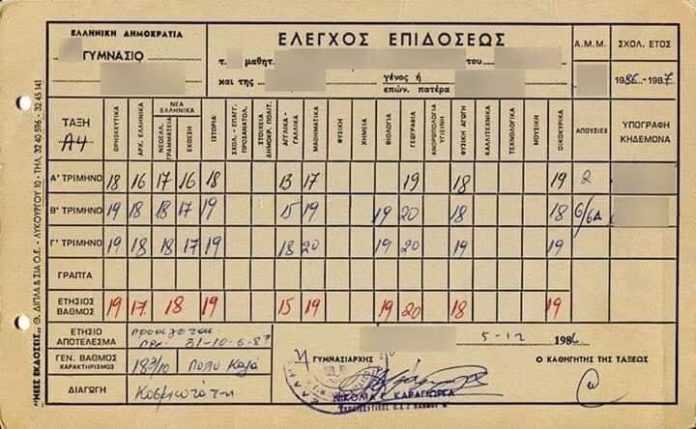 ΕΛΛΗΝΙΚΗ ΔΗΜΟΚΡΑΤΙΑ
ΓΥΜΝΑΣΙΟ
ΕΛΕΓΧΟΣ ΕΠΙΔΟΣΕΩΣ
τ. μαθητ. του
και της γένος ή
επών. πατέρα
Α.Μ.Μ.
ΣΧΟΛ. ΕΤΟΣ
1986-1987
ΤΑΞΗ
Α4
ΘΡΗΣΚΕΥΤΙΚΑ
ΑΡΧ. ΕΛΛΗΝΙΚΑ
ΝΕΑ ΕΛΛΗΝΙΚΑ
ΝΕΟΕΛΛ. ΓΡΑΜΜΑΤΕΙΑ
ΕΚΘΕΣΗ
ΙΣΤΟΡΙΑ
ΣΧΟΛ. - ΕΠΑΓΓ. ΠΡΟΣΑΝΑΤΟΛ.
ΣΤΟΙΧΕΙΑ ΔΗΜΟΚΡ. ΠΟΛΙΤ.
ΑΓΓΛΙΚΑ - ΓΑΛΛΙΚΑ
ΜΑΘΗΜΑΤΙΚΑ
ΦΥΣΙΚΗ
ΧΗΜΕΙΑ
ΒΙΟΛΟΓΙΑ
ΓΕΩΓΡΑΦΙΑ
ΑΝΘΡΩΠΟΛΟΓΙΑ ΥΓΙΕΙΝΗ
ΦΥΣΙΚΗ ΑΓΩΓΗ
ΚΑΛΛΙΤΕΧΝΙΚΑ
ΤΕΧΝΟΛΟΓΙΚΑ
ΜΟΥΣΙΚΗ
ΟΙΚΟΚΥΡΙΚΑ
ΑΠΟΥΣΙΕΣ
ΥΠΟΓΡΑΦΗ ΚΗΔΕΜΟΝΑ
Α' ΤΡΙΜΗΝΟ 18 16 17 16 18 13 17 19 18 19 2
Β' ΤΡΙΜΗΝΟ 19 18 18 17 19 15 19 19 20 18 18 6/6Δ
Γ' ΤΡΙΜΗΝΟ 19 18 18 17 19 18 20 19 20 19 19
ΓΡΑΠΤΑ
ΕΤΗΣΙΟΣ ΒΑΘΜΟΣ 19 17 18 19 15 19 19 20 18 19
ΕΤΗΣΙΟ ΑΠΟΤΕΛΕΣΜΑ
ΓΕΝ. ΒΑΘΜΟΣ ΧΑΡΑΚΤΗΡΙΣΜΟΣ
Πολύ Καλά
ΔΙΑΓΩΓΗ Κοσμιωτάτη
5-12 1986
ΓΥΜΝΑΣΙΑΡΧΗΣ
Ο ΚΑΘΗΓΗΤΗΣ ΤΗΣ ΤΑΞΕΩΣ
ΚΑΡΑΓΙΩΡΓΑ
"ΝΕΕΣ ΕΚΔΟΣΕΙΣ" Θ. ΔΙΠΛΑ & ΣΙΑ Ο.Ε. - ΛΥΚΟΥΡΓΟΥ 10 - ΤΗΛ. 32 40 596 - 32 45 141